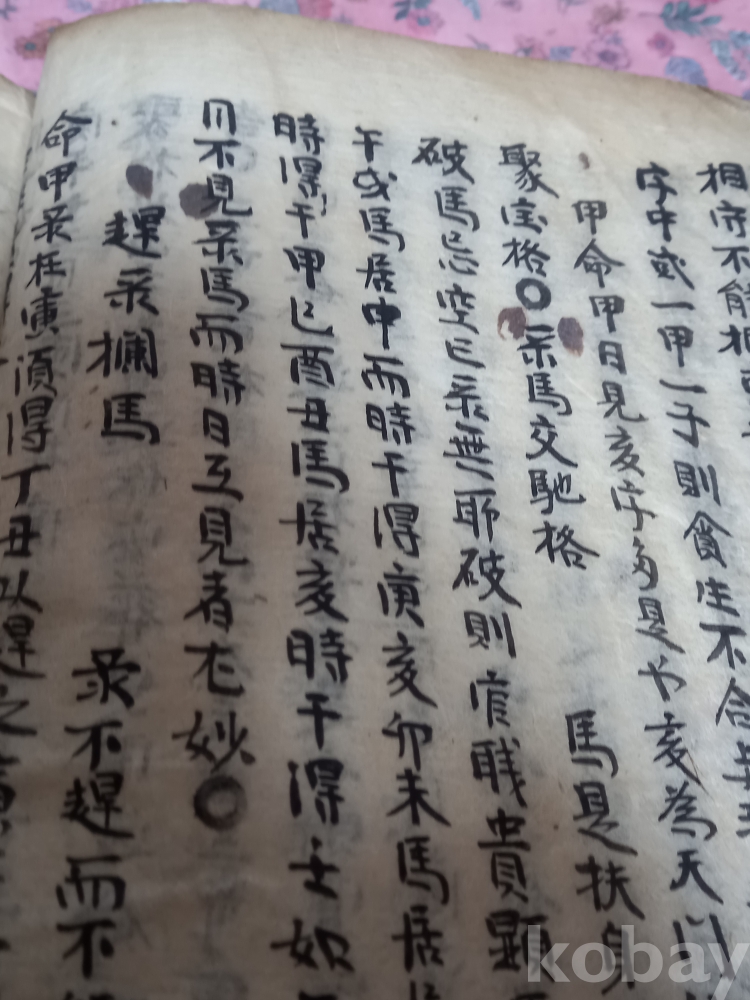 相守不能相
字中或一甲一子則食生不合
甲命甲日見亥字多是也亥為天門
聚宝格〇彔馬交馳格 馬是扶身
破馬忌空亡彔無耶破則官職貴顕
午或馬居中而時干得庚亥卯未馬居
時得干甲巳酉丑馬居亥時干得壬如
日不見彔馬而時日互見者尤妙〇
趕彔攔馬 彔不趕而不
命甲彔在寅須得丁丑以趕之
kobay